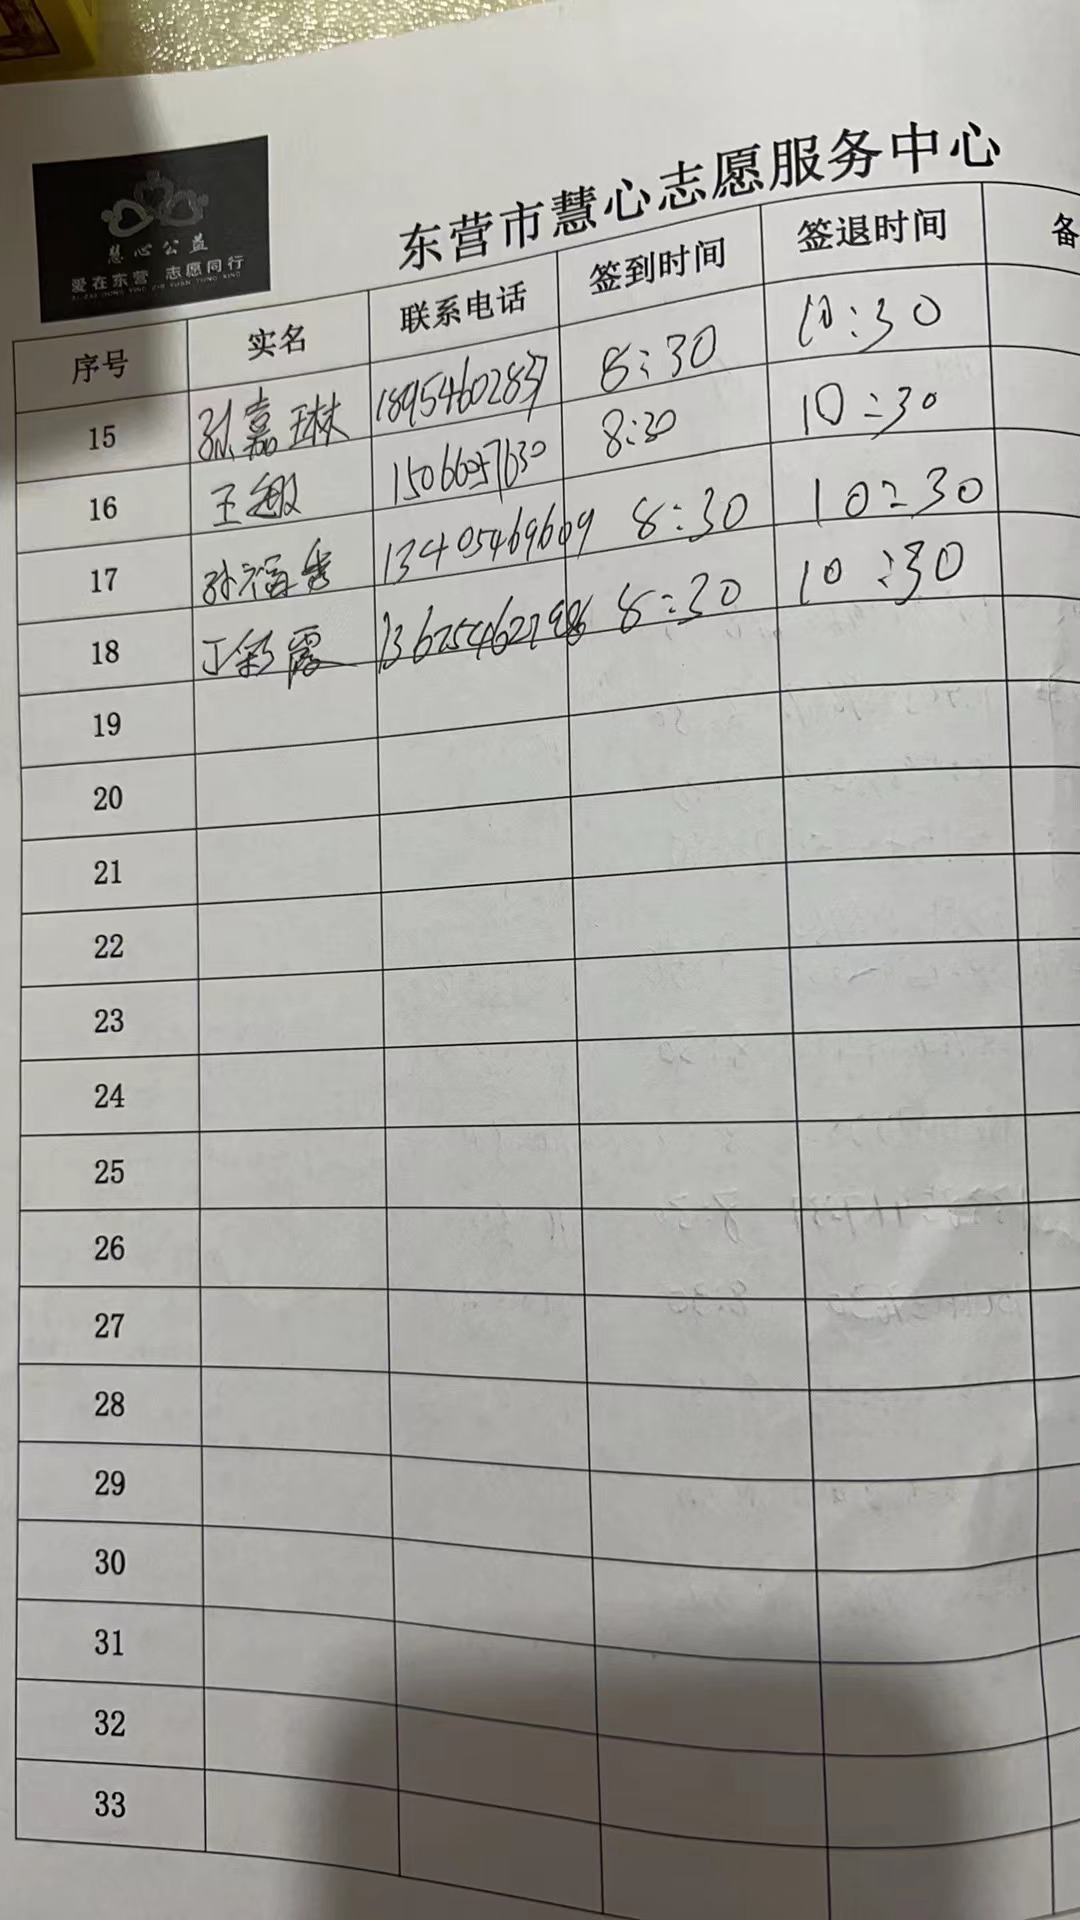 东营市慧心志愿服务中心
慧心公益
爱在东营 志愿同行
AI ZAI DONG YING ZHI YUAN TONG XING
序号 实名 联系电话 签到时间 签退时间 备
15 孙嘉琳 18954602837 8:30 10:30
16 王敏 15066057630 8:30 10:30
17 孙福香 13405469609 8:30 10:30
18 丁彩霞 8:30 10:30
19
20
21
22
23
24
25
26
27
28
29
30
31
32
33